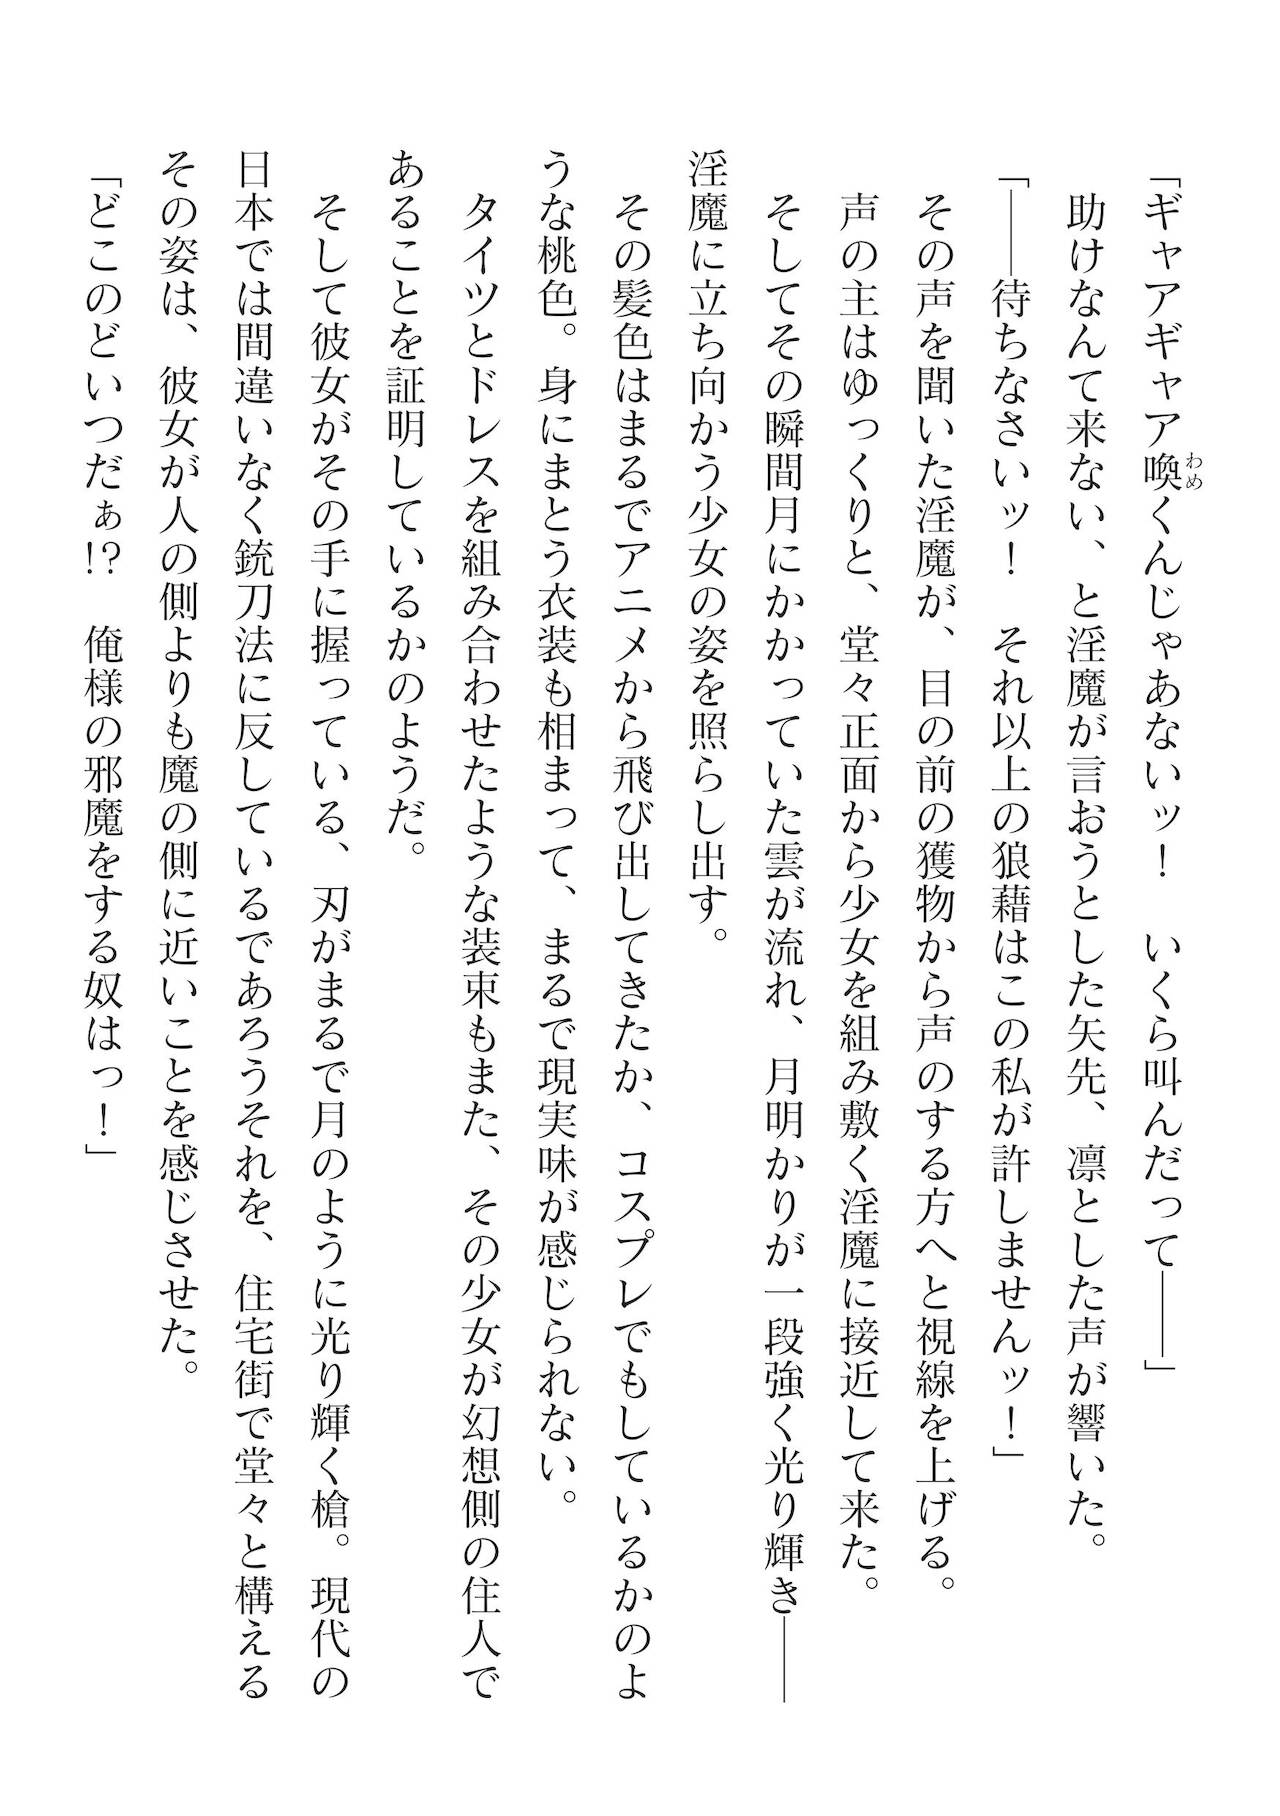 「ギャアギャア喚くんじゃあないッ！　いくら叫んだって――」
わめ
　助けなんて来ない、と淫魔が言おうとした矢先、凛とした声が響いた。
「――待ちなさいッ！　それ以上の狼藉はこの私が許しませんッ！」
　その声を聞いた淫魔が、目の前の獲物から声のする方へと視線を上げる。
　声の主はゆっくりと、堂々正面から少女を組み敷く淫魔に接近して来た。
　そしてその瞬間月にかかっていた雲が流れ、月明かりが一段強く光り輝き――
淫魔に立ち向かう少女の姿を照らし出す。
　その髪色はまるでアニメから飛び出してきたか、コスプレでもしているかのよ
うな桃色。身にまとう衣装も相まって、まるで現実味が感じられない。
　タイツとドレスを組み合わせたような装束もまた、その少女が幻想側の住人で
あることを証明しているかのようだ。
　そして彼女がその手に握っている、刃がまるで月のように光り輝く槍。現代の
日本では間違いなく銃刀法に反しているであろうそれを、住宅街で堂々と構える
その姿は、彼女が人の側よりも魔の側に近いことを感じさせた。
「どこのどいつだぁ!?　俺様の邪魔をする奴はっ！」